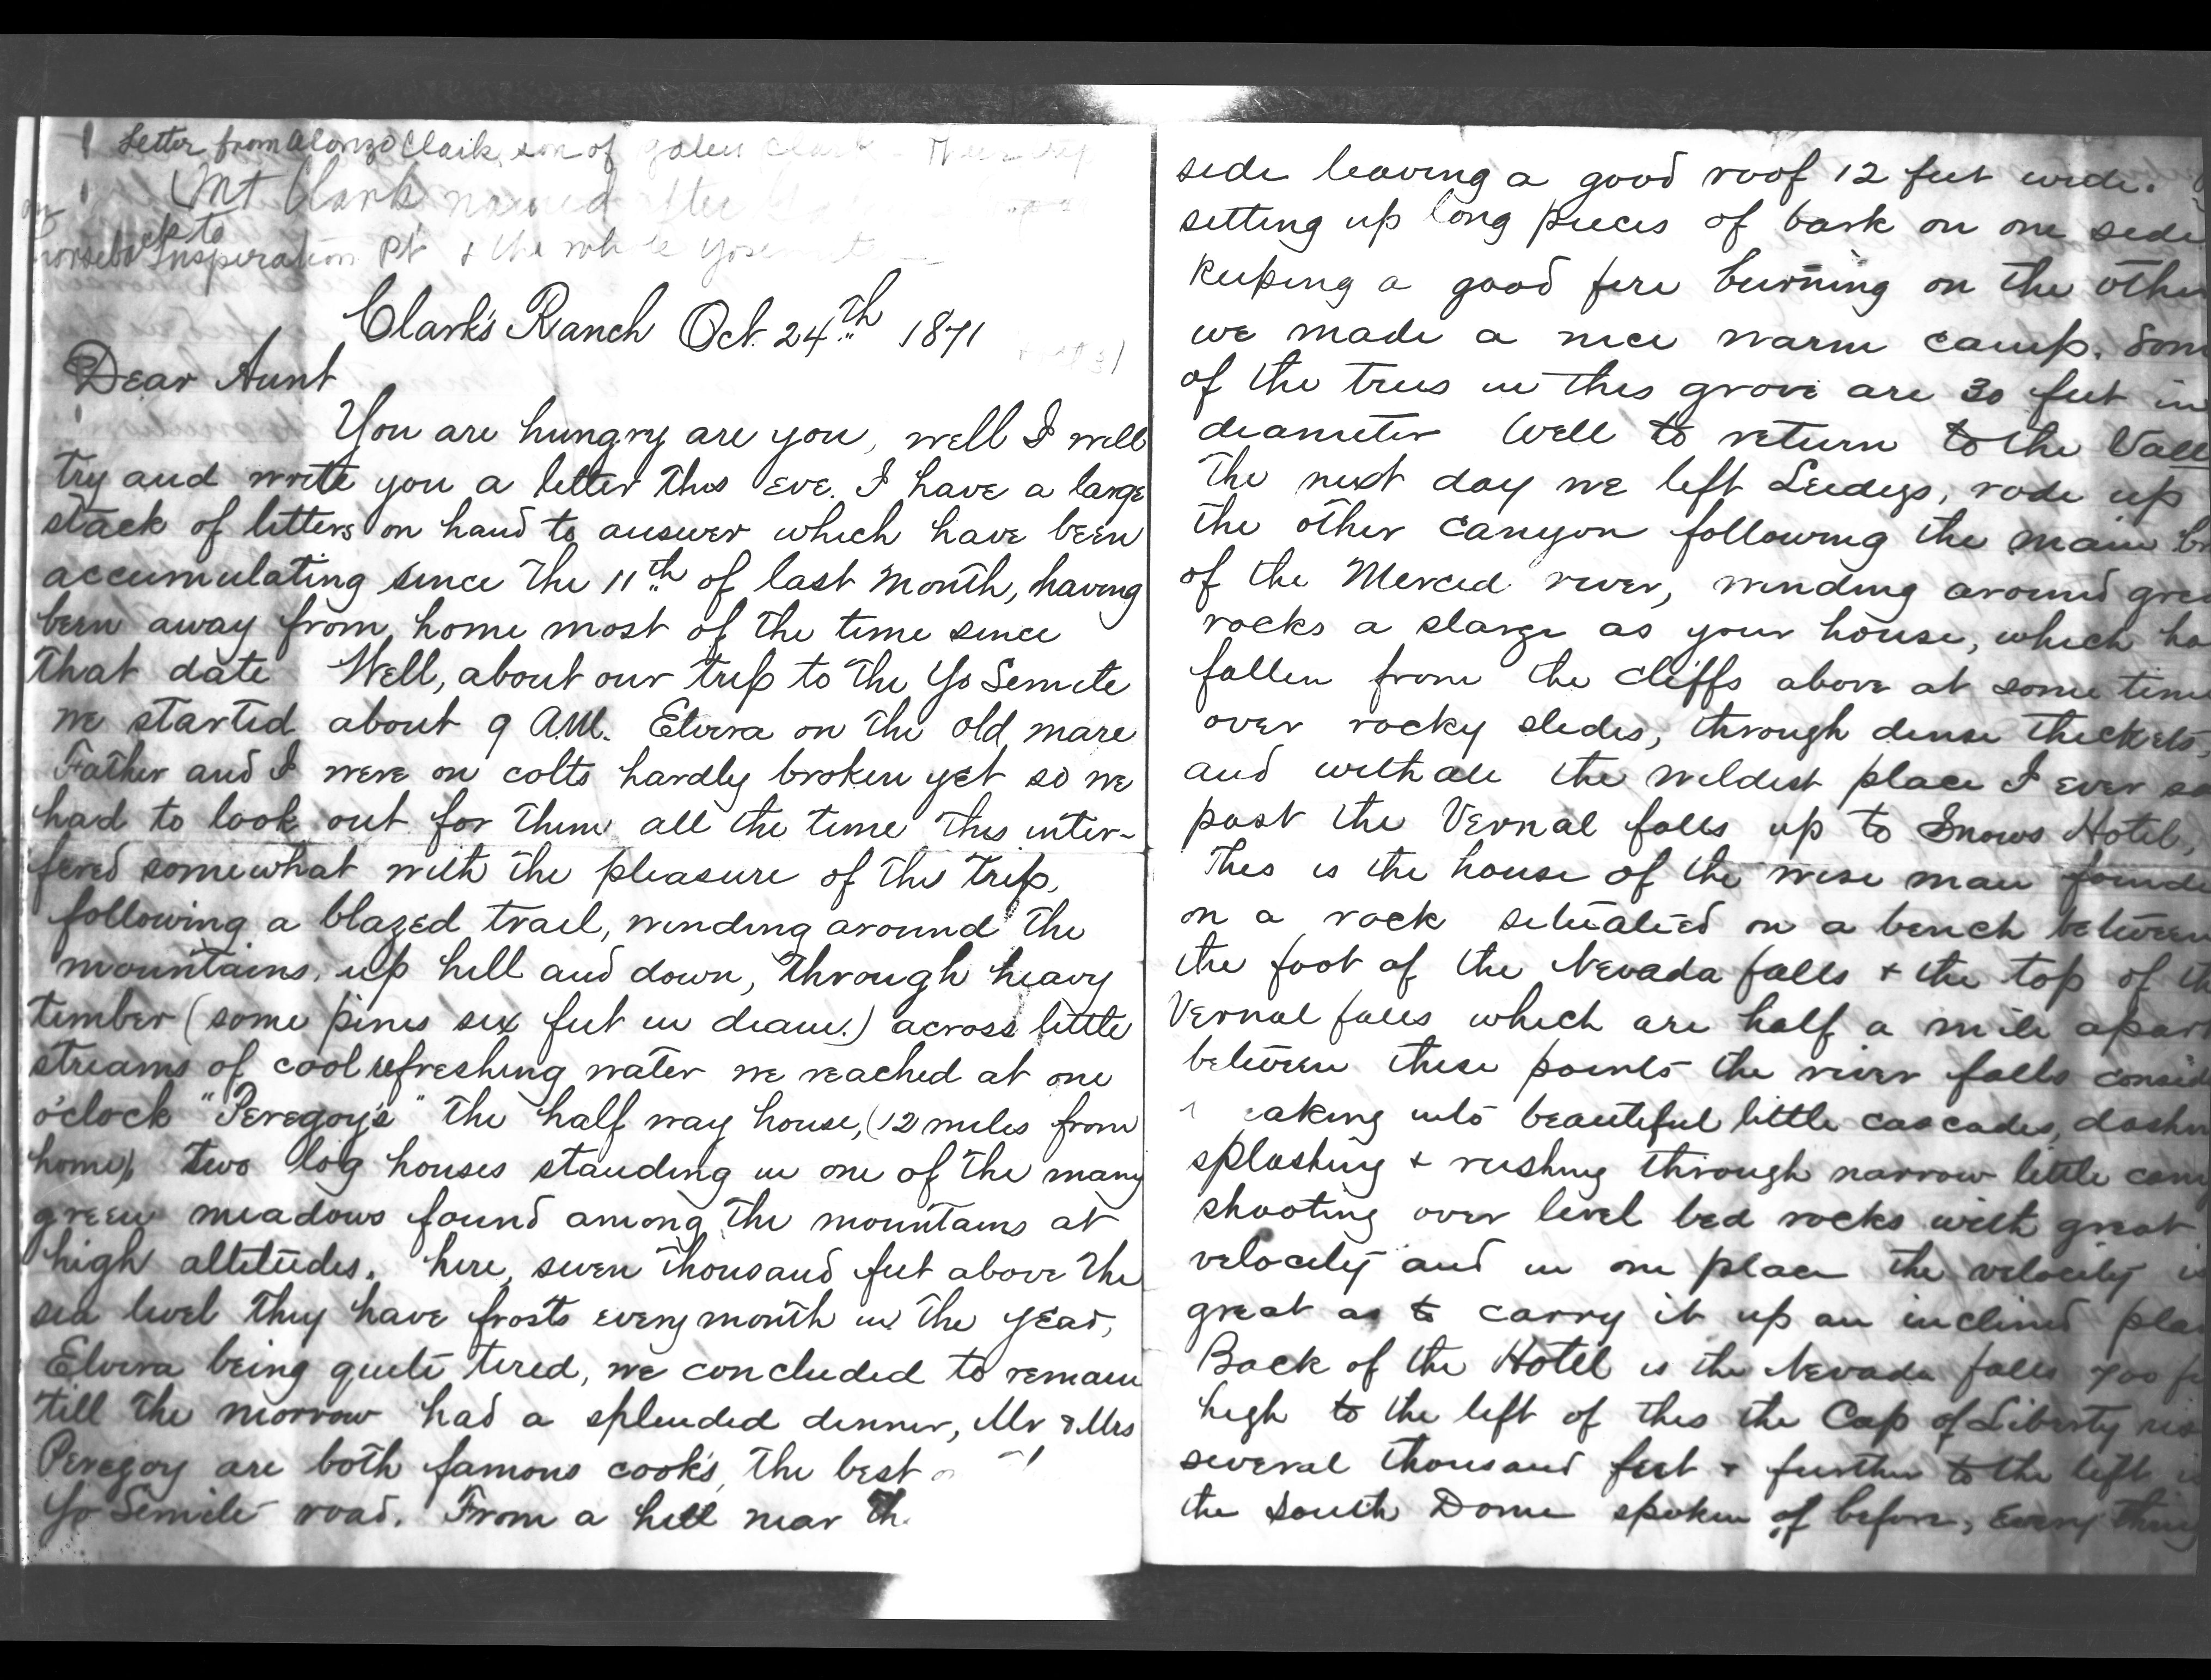 Letter from Alonzo Clark, son of Galen Clark - Their trip
Mt Clark named after
horseback to Insperation Pt & the whole Yosemite
Clark's Ranch Oct. 24th 1871
Dear Aunt
You are hungry are you, well I will
try and write you a letter this eve. I have a large
stack of letters on hand to answer which have been
accumulating since the 11th of last month, having
been away from home most of the time since
that date Well, about our trip to the Yo Semite
we started about 9 A.M. Elvira on the old mare
Father and I were on colts hardly broken yet so we
had to look out for them all the time this inter-
fered somewhat with the pleasure of the trip.
following a blazed trail, winding around the
mountains, up hill and down, through heavy
timber (some pines six feet in diam.) across little
streams of cool refreshing water we reached at one
o'clock "Peregoy's" the half way house, (12 miles from
home), two log houses standing in one of the many
green meadows found among the mountains at
high altitudes. here, seven thousand feet above the
sea level they have frosts every month in the year,
Elvira being quite tired, we concluded to remain
till the morrow had a splendid dinner, Mr & Mrs
Peregoy are both famous cook's, the best
Yo Semite road. From a hill near th
side leaving a good roof 12 feet wide.
setting up long pieces of bark on one side
keeping a good fire burning on the other
we made a nice warm camp. Som
of the trees in this grove are 30 feet in
diameter Well to return to the Vall
the next day we left Leidigs, rode up
the other canyon following the main br
of the Merced river, winding around grea
rocks a slarge as your house, which ha
fallen from the cliffs above at some time
over rocky slides, through dense thickets,
and withall the wildest place I ever sa
past the Vernal falls up to Snows Hotel,
This is the house of the wise man founde
on a rock situatied on a bench between
the foot of the Nevada falls & the top of th
Vernal falls which are half a mile apar
between these points the river falls consid
aking into beautiful little cascades, dashin
splashing & rushing through narrow little cany
shooting over level bed rocks with great
velocity and in one place the velocity is
great as to carry it up an inclined pla
Back of the Hotel is the Nevada falls 700 fe
high to the left of this the Cap of Liberty ris
several thousand feet & further to the left is
the South Dome spoken of before, Every thing